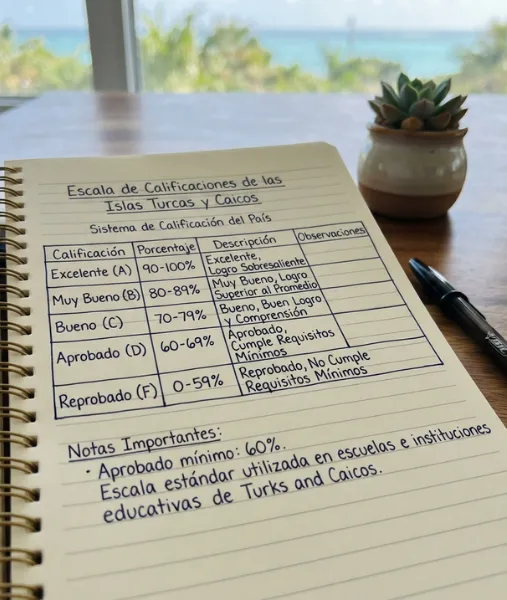 Escala de Calificaciones de las
Islas Turcas y Caicos
Sistema de Calificación del País
Calificación Porcentaje Descripción Observaciones
Excelente (A) 90-100% Excelente,
Logro Sobresaliente
Muy Bueno (B) 80-89% Muy Bueno, Logro
Superior al Promedio
Bueno (C) 70-79% Bueno, Buen Logro
y Comprensión
Aprobado (D) 60-69% Aprobado,
Cumple Requisitos
Mínimos
Reprobado (F) 0-59% Reprobado, No Cumple
Requisitos Mínimos
Notas Importantes:
· Aprobado mínimo: 60%.
Escala estándar utilizada en escuelas e instituciones
educativas de Turks and Caicos.